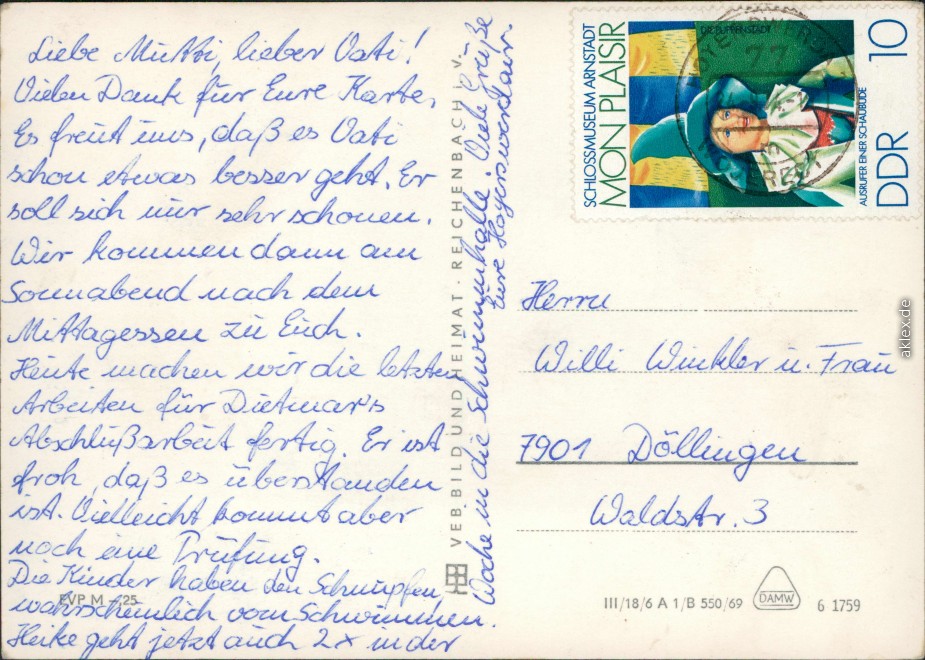 Liebe Mutti, lieber Vati!
Vielen Dank für Eure Karte.
Es freut uns, daß es Vati
schon etwas besser geht. Er
soll sich nur sehr schonen.
Wir kommen dann am
Sonnabend nach dem
Mittagessen zu Euch.
Heute machen wir die letzten
Arbeiten für Dietmar's
Abschlußarbeit fertig. Er ist
froh, daß es überstanden
ist. Vielleicht kommt aber
noch eine Prüfung.
Die Kinder haben den Schnupfen
wahrscheinlich vom Schwimmen.
Heike geht jetzt auch 2x in der
Woche in die Schwimmhalle. Viele Grüße
Eure Hoyerswerdaer.
EVP M -,25
VEB BILD UND HEIMAT · REICHENBACH i. V.
SCHLOSSMUSEUM ARNSTADT
MON PLAISIR
DIE PUPPENSTADT
AUSRUFER EINER SCHAUBUDE
DDR 10
77
Herrn
Willi Winkler u. Frau
7901 Döllingen
Waldstr. 3
III/18/6 A 1/B 550/69
DAMW
6 1759
aklex.de